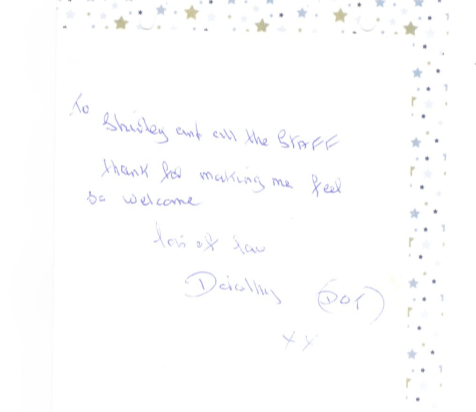 To
Shirley and all the STAFF
thank for making me feel
so welcome
lots of luv
Dorothy (DOT)
xx